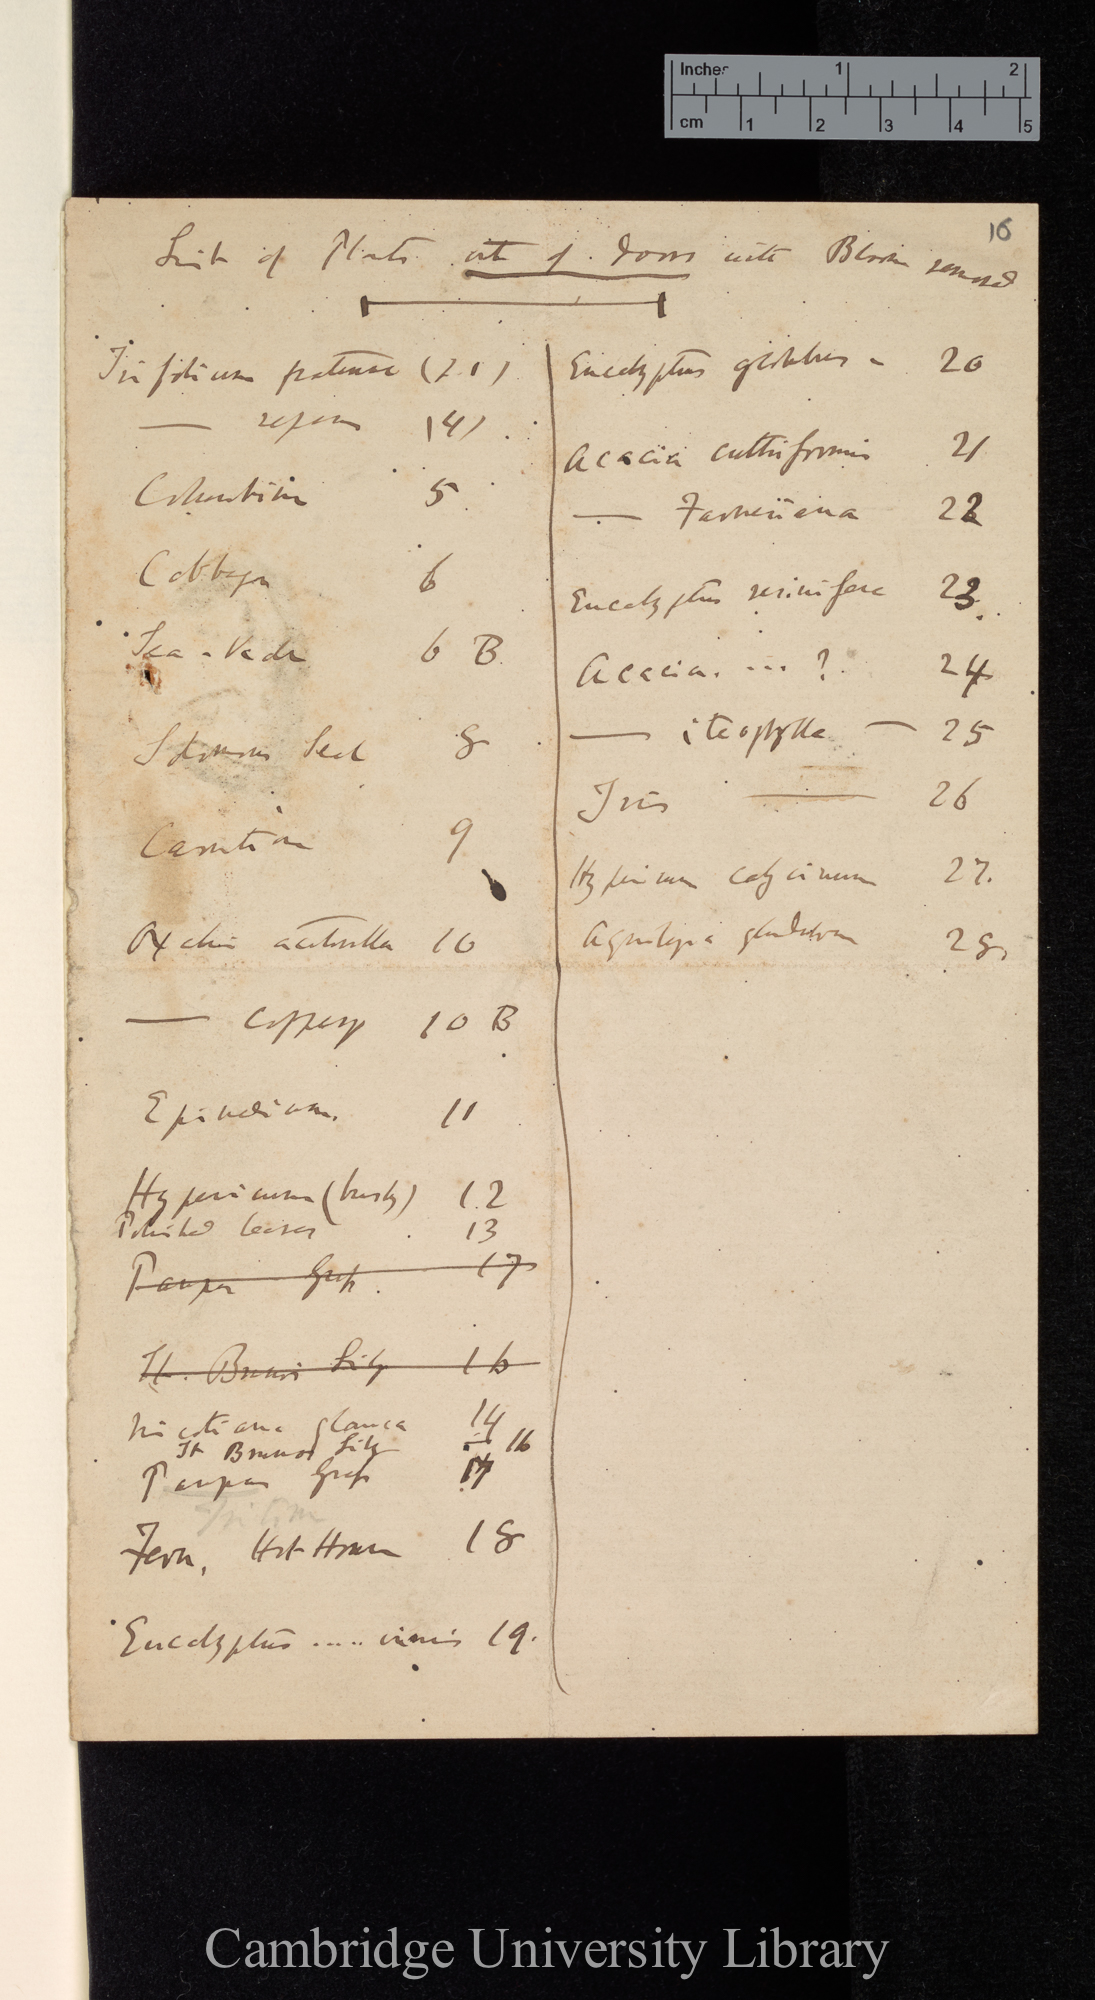 Inches 1 2
cm 1 2 3 4 5
16
List of Plants out of doors with Bloom removed
Trifolium pratense (21)
— repens (4)
Columbine 5
Cabbage 6
Sea-Kale 6 B
Solomons Seal 8
Carnation 9
Oxalis acetosella 10
— coppery 10 B
Epimedium 11
Hypericum (bushy) 12
Polished leaves 13
Pampas Grass 17
St. Bruno's Lily 16
Nicotiana glauca 14
St Brunos Lily 16
Pampas Grass 17
Fern, Hot House 18
Eucalyptus ..... 19.
Eucalyptus globulus - 20
Acacia cultriformis 21
— Farnesiana 22
Eucalyptus resinifera 23
Acacia. ... ? 24
— iteophylla — 25
Iris — 26
Hypericum calycinum 27.
28
Cambridge University Library